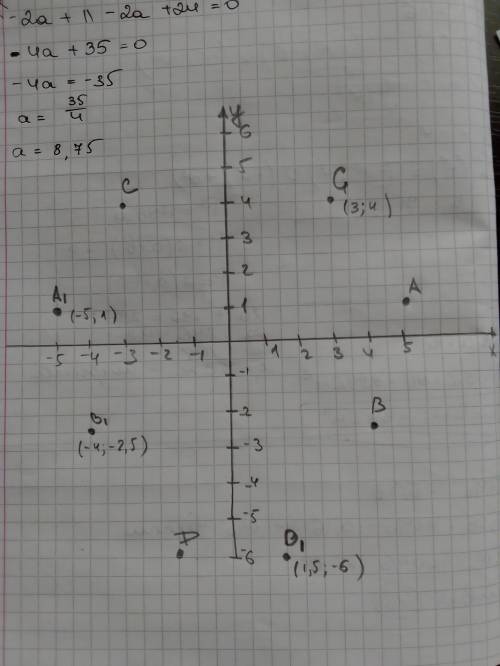 -2a + 11 - 2a + 24 = 0
- 4a + 35 = 0
-4a = -35
a = 35/4
a = 8,75
y
6
5
4
3
2
1
C
G
(3; 4)
A1
(-5; 1)
A
-5 -4 -3 -2 -1 1 2 3 4 5 x
-1
-2
-3
-4
-5
-6
B1
(-4; -2,5)
B
D
D1
(1,5; -6)